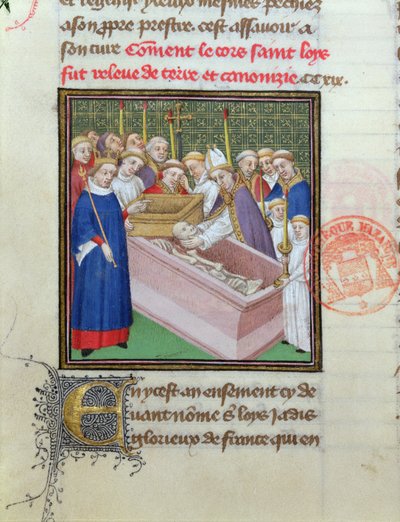 et legende et yceux mesmes pechiez
a son ppre prestre. cest assavoir a
son cure Coment le cors saint loys
fut releve de terre et canonizie. CC xix.
En ycest an ensement cy de
uant nome S. loys Jadis
glorieux de france qui en